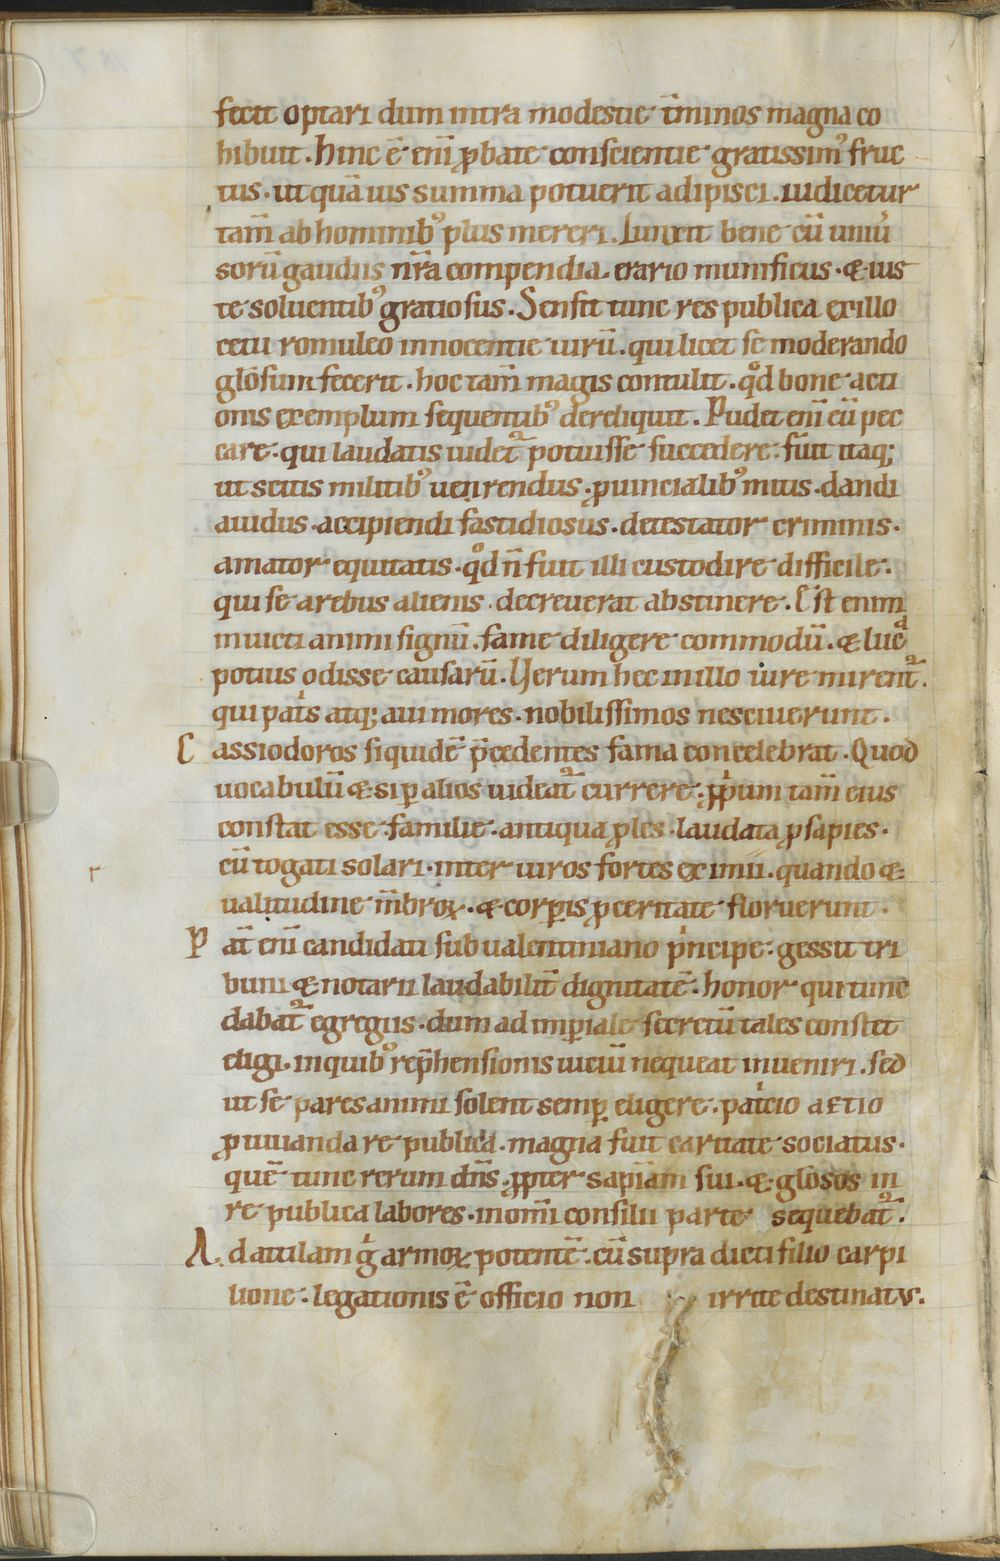 fecit optari dum intra modestie t̄minos magna co
hibuit. hinc ē eni̅ ꝓbate conscientie gratissim᾽ fruc
tus. ut quā uis summa potuerit adipisci. iudicetur
tam̄ ab hominib᾽ plus mereri. Iunxit bene cū uniu᾽
sorū gaudiis nr̄a compendia. erario munificus. & ius
te soluentib᾽ gratiosus. Sensit tunc res publica ex illo
cetu romuleo innocentie uirū. qui licet se moderando
glōsum fecerit. hoc tam̄ magis contulit. qͦd bone acti
onis exemplum sequentib᾽ dereliquit. Pudet eni̅ eū pec
care. qui laudatis uidet᷑ potuisse succedere. fuit itaq;
ut scitis militib᾽ uerendus. ꝓuincialib᾽ mitis. dandi
auidus. accipiendi fastidiosus. detestator criminis.
amator equitatis. qͦd n̄ fuit illi custodire difficile.
qui se a rebus alienis. decreuerat abstinere. Est enim
inuicti animi signū. fame diligere commodū. & luc᷑
potius odisse causarū. Verum hec in illo iure mirent᷑.
qui pat͛s atq; aui mores. nobilissimos nesciuerunt.
Cassiodoros siquidē p̄cedentes fama concelebrat. Quod
uocabulū & si ꝑ alios uideat᷑ currere. ꝓpͥum tam̄ eius
constat esse familie. antiqua ꝓles. laudata ꝓsapies.
cū togati s olari. inter uiros fortes eximii. quando &
ualitudine m̄broꝝ. & corꝑis ꝓceritate floruerunt.
Pat̄ eni̅ candidati sub ualentiniano pͥncipe. gessit tri
buni & notarii laudabilit̄ dignitatē. honor qui tunc
dabat᷑ egregiis. dum ad imꝑiale secretū tales constet
eligi. in quib᾽ rep̄hensionis uiciū nequeat inueniri. sed
ut se pares animi solent semꝑ eligere. patͥcio aetio
ꝓ iuuanda re publica. magna fuit caritate sociatus.
quē tunc rerum dn̄s. ꝓpter sapīam sui. & glōsos in
re publica labores. in om̄i consilii parte sequebat᷑.
Ad attilam gͥ armoꝝ potentē. cū supra dicti filio carpi
lione. legationis ē officio non irrite destinatus.